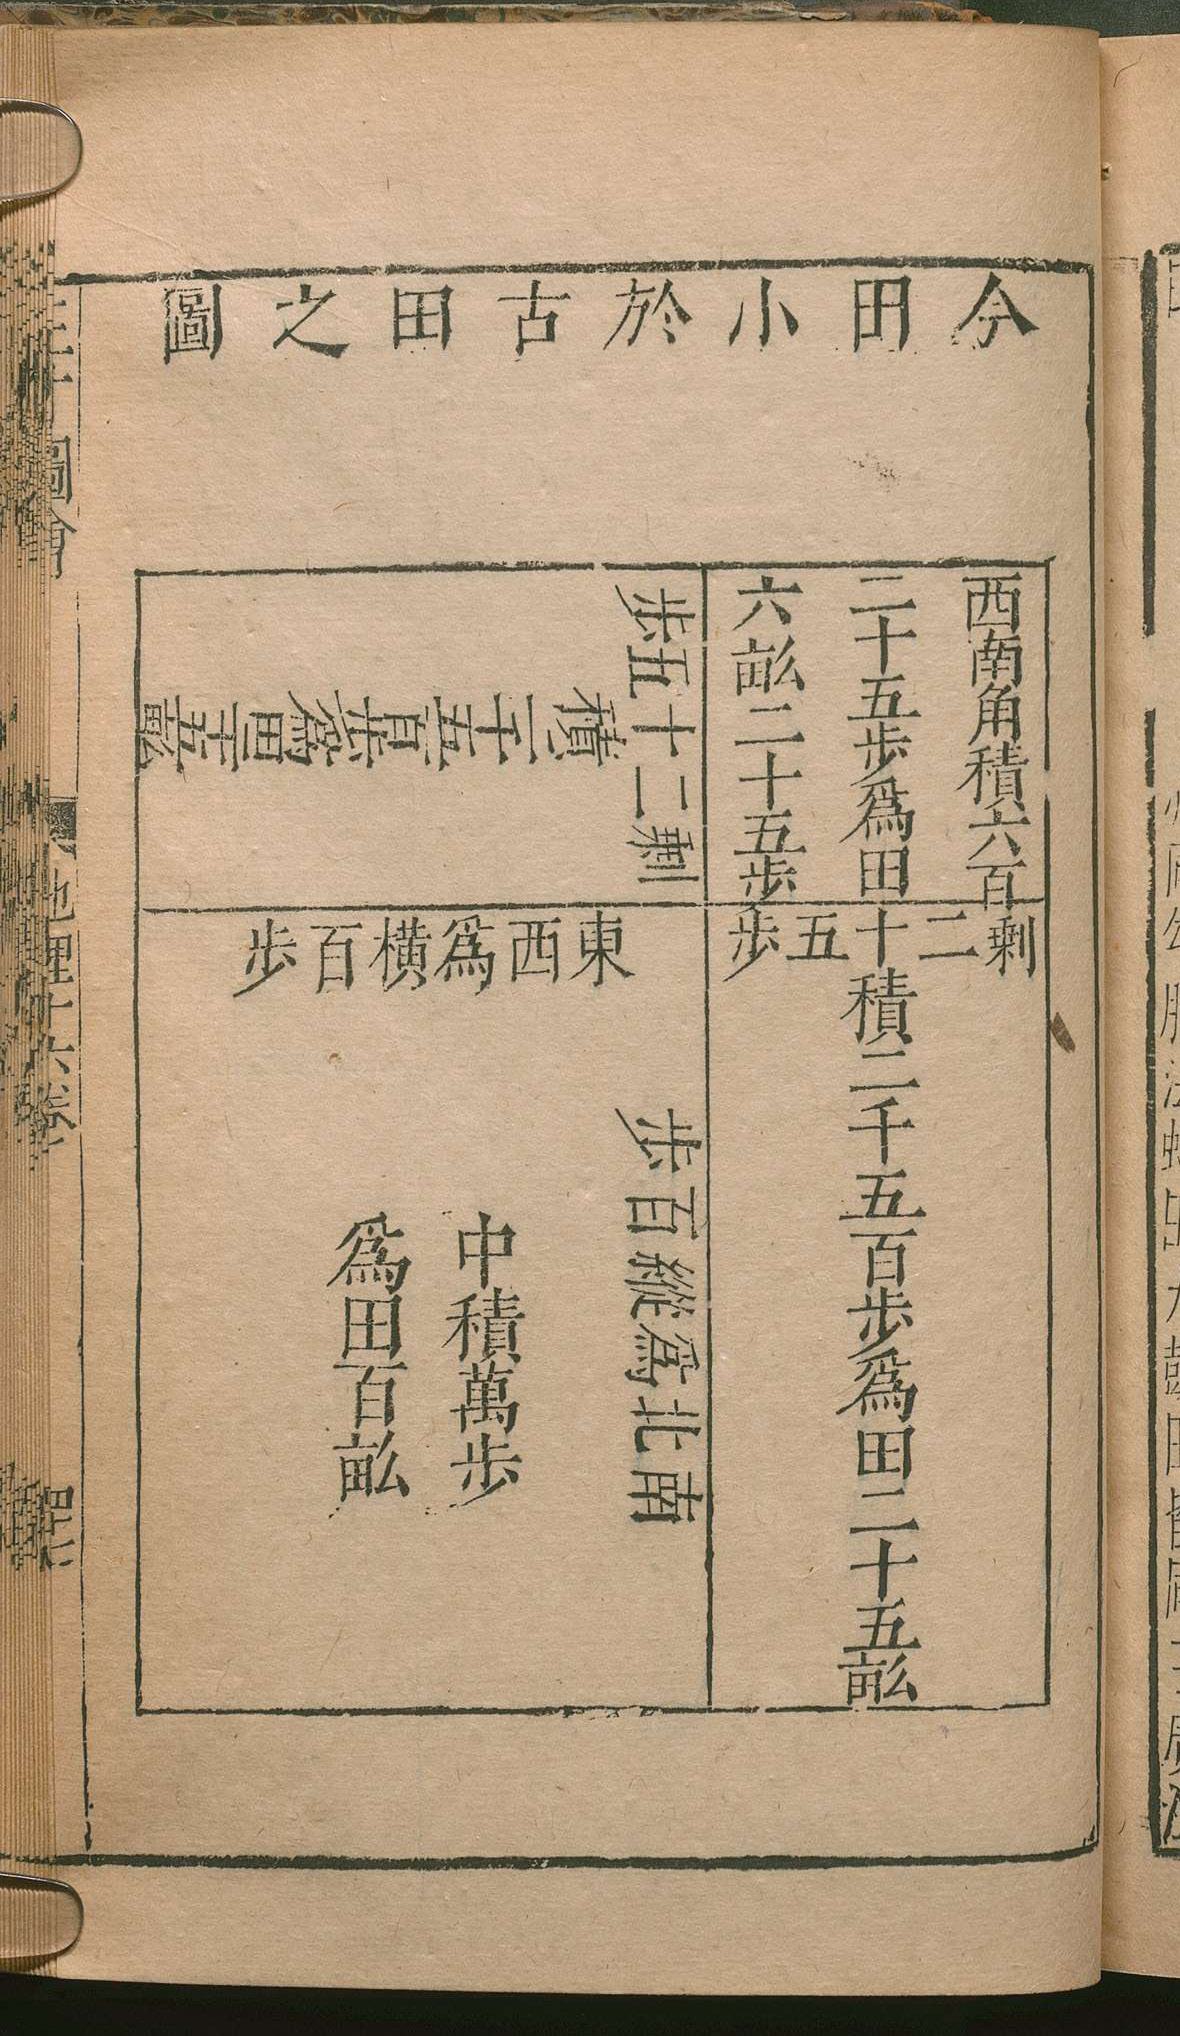 今田小於古田之圖
西南角積六百
二十五步爲田
六畝二十五步
剩二十五步
積二千五百步爲田
二十五畝
剩二十五步
積二千五百步爲田二十五畝
東西爲橫百步
南北爲縱百步
中積萬步
爲田百畝
圖會
地理十六卷